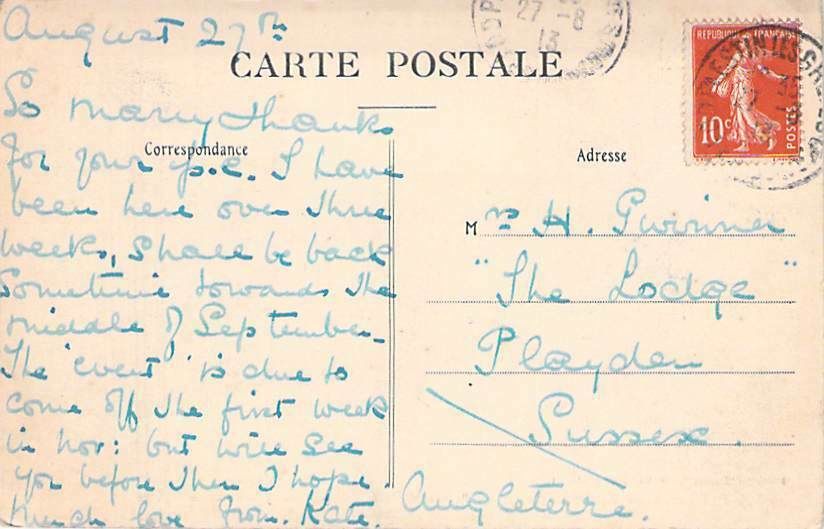 August 27th
27 -8
13
CARTE POSTALE
REPUBLIQUE FRANÇAISE
10c
POSTES
Correspondance
So many thanks
for your p.c. I have
been here over three
weeks, shall be back
sometime towards the
middle of September_
The "event" is due to
come off the first week
in Nov: but will see
you before then I hope.
Much love from. Kate.
Adresse
Mrs H.
"The Lodge"
Playden
Sussex.
Angleterre.